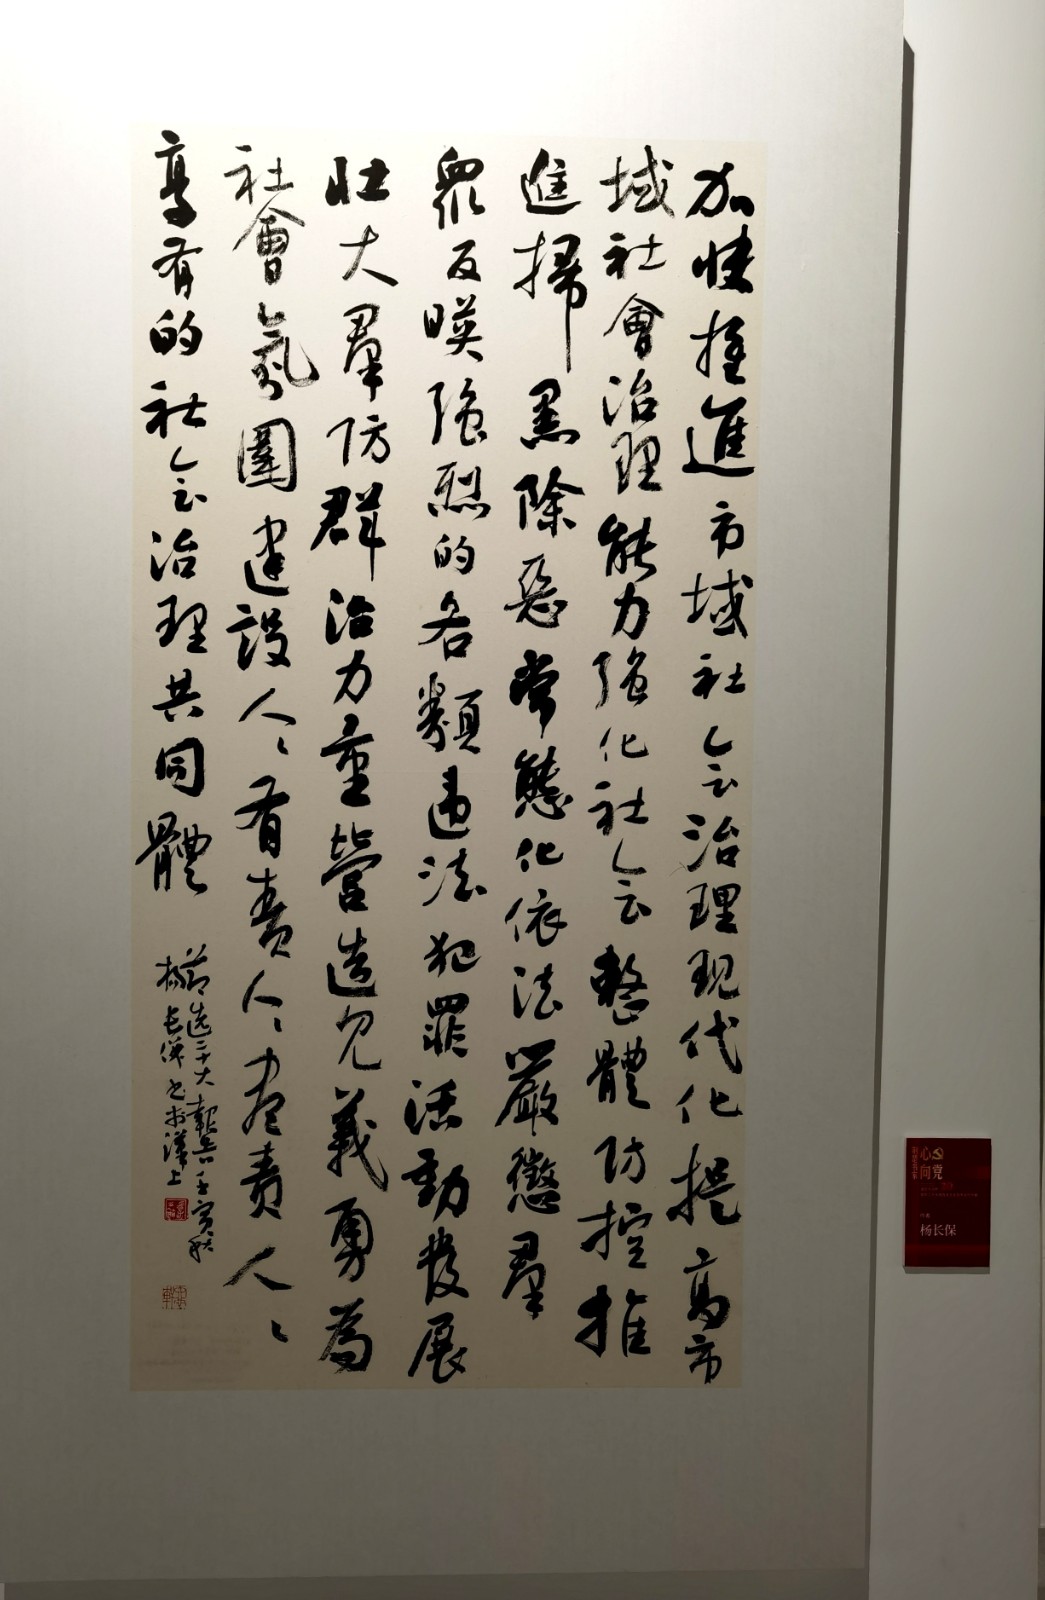 加快推進市域社会治理現代化提高市
域社會治理能力強化社会整體防控推
進掃黑除惡常態化依法嚴懲羣
衆反映強烈的各類違法犯罪活動發展
壯大羣防群治力量營造見義勇為
社會氛圍建設人々有責人々盡責人々
享有的社会治理共同體
節選二十大報告壬寅秋
楊長保書於漢上
心向党
作者
杨长保